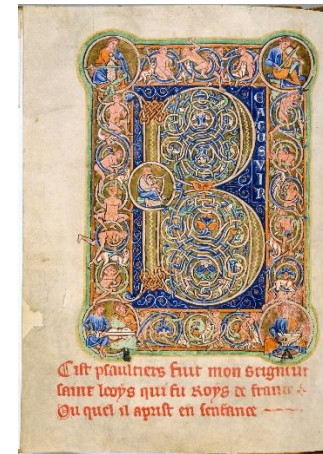 B
EATUS VIR
Cist psaultiers fuit mon seigneur
saint looys qui fu Roys de france
Ou quel il aprist en senfance